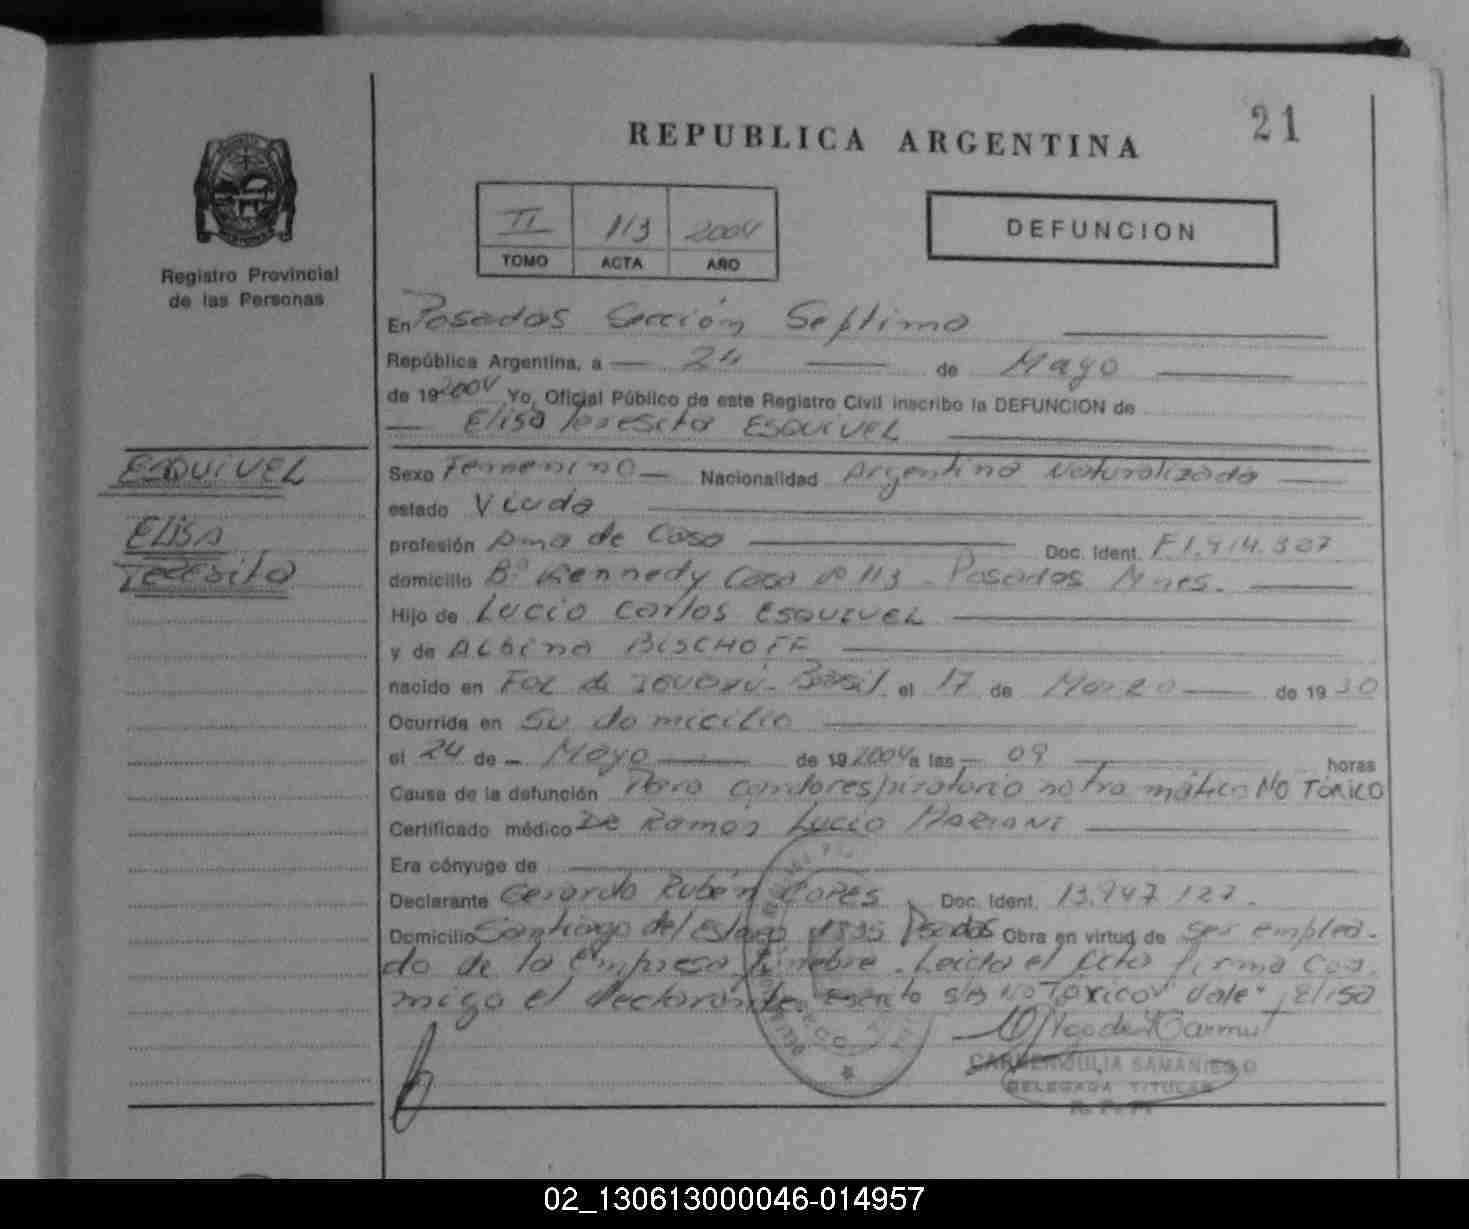 21
REPUBLICA ARGENTINA
II 113 2004
TOMO ACTA AÑO
DEFUNCION
Registro Provincial
de las Personas
En Posadas Sección Septima
República Argentina, a — 24 — de Mayo
de 19 2004 Yo, Oficial Público de este Registro Civil inscribo la DEFUNCION de
— Elisa Teresita ESQUIVEL
ESQUIVEL
Elisa
Teresita
Sexo Femenino — Nacionalidad Argentina Naturalizada
estado Viuda
profesión Ama de Casa Doc. Ident. F 1.914.307
domicilio Bº Kennedy Casa Nº 113 - Posadas Mnes.
Hijo de Lucio Carlos ESQUIVEL
y de Albina BISCHOFF
nacido en Foz de Brasil el 17 de Marzo de 19 30
Ocurrida en Su domicilio
el 24 de — Mayo de 19 2004 a las — 09 horas
Causa de la defunción Paro cardorespiratorio no tra mático NO TÓXICO
Certificado médico Dr Ramón Lucio MARIANI
Era cónyuge de
Declarante Gerardo Rubén Doc. Ident. 13.947.127.
Domicilio Santiago del Estero Posadas Obra en virtud de ser emplea-
do de la Empresa Fúnebre. Leida el Acta firma Con-
migo el declarante s/b NO TOXICO "Vale", Elisa
CARMEN JULIA SAMANIEGO
DELEGADA TITULAR
R. P. P.
02_130613000046-014957